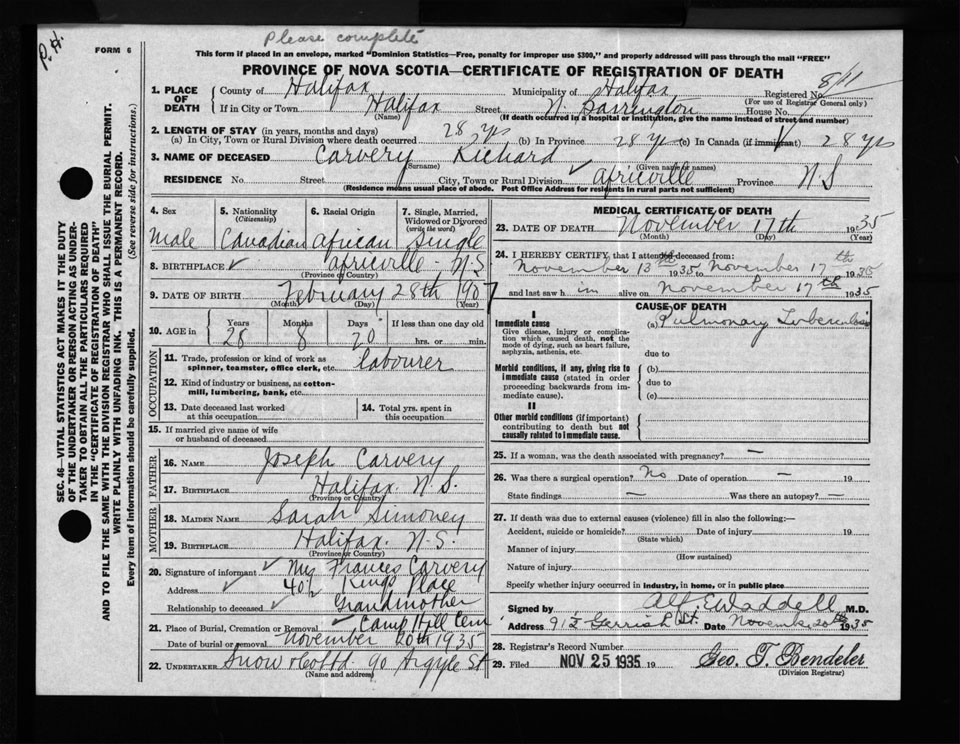 Please complete
P.H.
FORM 6
This form if placed in an envelope, marked "Dominion Statistics—Free, penalty for improper use $300," and properly addressed will pass through the mail "FREE"
PROVINCE OF NOVA SCOTIA—CERTIFICATE OF REGISTRATION OF DEATH
SEC. 46—VITAL STATISTICS ACT MAKES IT THE DUTY
OF THE UNDERTAKER OR PERSON ACTING AS UNDER-
TAKER TO OBTAIN ALL THE PARTICULARS REQUIRED
IN THE "CERTIFICATE OF REGISTRATION OF DEATH"
AND TO FILE THE SAME WITH THE DIVISION REGISTRAR WHO SHALL ISSUE THE BURIAL PERMIT.
WRITE PLAINLY WITH UNFADING INK. THIS IS A PERMANENT RECORD.
Every item of information should be carefully supplied. (See reverse side for instructions.)
1. PLACE OF DEATH County of Halifax Municipality of Halifax Registered No. 811
(For use of Registrar General only)
If in City or Town Halifax Street N. Barrington House No.
(Name) (If death occurred in a hospital or institution, give the name instead of street and number)
2. LENGTH OF STAY (in years, months and days)
(a) In City, Town or Rural Division where death occurred 28 yrs (b) In Province 28 yrs (c) In Canada (if immigrant) 28 yrs
3. NAME OF DECEASED Carvery Richard
(Surname) (Given name or names)
RESIDENCE No. Street City, Town or Rural Division Africville Province N.S
(Residence means usual place of abode. Post Office Address for residents in rural parts not sufficient)
4. Sex Male
5. Nationality (Citizenship) Canadian
6. Racial Origin African
7. Single, Married, Widowed or Divorced (write the word) Single
8. BIRTHPLACE Africville - N.S
(Province or Country)
9. DATE OF BIRTH February 28th 1907
(Month) (Day) (Year)
10. AGE in Years 28 Months 8 Days 20 If less than one day old hrs. or min.
OCCUPATION
11. Trade, profession or kind of work as spinner, teamster, office clerk, etc. labourer
12. Kind of industry or business, as cotton-mill, lumbering, bank, etc.
13. Date deceased last worked at this occupation
14. Total yrs. spent in this occupation
15. If married give name of wife or husband of deceased
FATHER
16. NAME Joseph Carvery
17. BIRTHPLACE Halifax. N.S.
(Province or Country)
MOTHER
18. MAIDEN NAME Sarah Simoney
19. BIRTHPLACE Halifax. N.S.
(Province or Country)
20. Signature of informant Mrs Frances Carvery
Address 40½ Kings Place
Relationship to deceased Grandmother
21. Place of Burial, Cremation or Removal Camp Hill Cem
Date of burial or removal November 20th 1935
22. UNDERTAKER Snow & Co Ltd. 90 Argyle St
(Name and address)
MEDICAL CERTIFICATE OF DEATH
23. DATE OF DEATH November 17th 1935
(Month) (Day) (Year)
24. I HEREBY CERTIFY that I attended deceased from:
November 13th 1935 to November 17th 1935
and last saw him alive on November 17th 1935
CAUSE OF DEATH
I
Immediate cause (a) Pulmonary Tuberculosis
Give disease, injury or complication which caused death, not the mode of dying, such as heart failure, asphyxia, asthenia, etc.
due to
Morbid conditions, if any, giving rise to immediate cause (stated in order proceeding backwards from immediate cause). (b)
due to
(c)
II
Other morbid conditions (if important) contributing to death but not causally related to immediate cause.
25. If a woman, was the death associated with pregnancy? —
26. Was there a surgical operation? No Date of operation — 19
State findings — Was there an autopsy? —
27. If death was due to external causes (violence) fill in also the following:—
Accident, suicide or homicide? Date of injury 19
(State which)
Manner of injury
(How sustained)
Nature of injury
Specify whether injury occurred in industry, in home, or in public place
Signed by Alf E Waddell M.D.
Address 91½ Gerrish St. Date November 20th 1935
28. Registrar's Record Number
29. Filed NOV 25 1935 19 Geo. T. Bendeler
(Division Registrar)